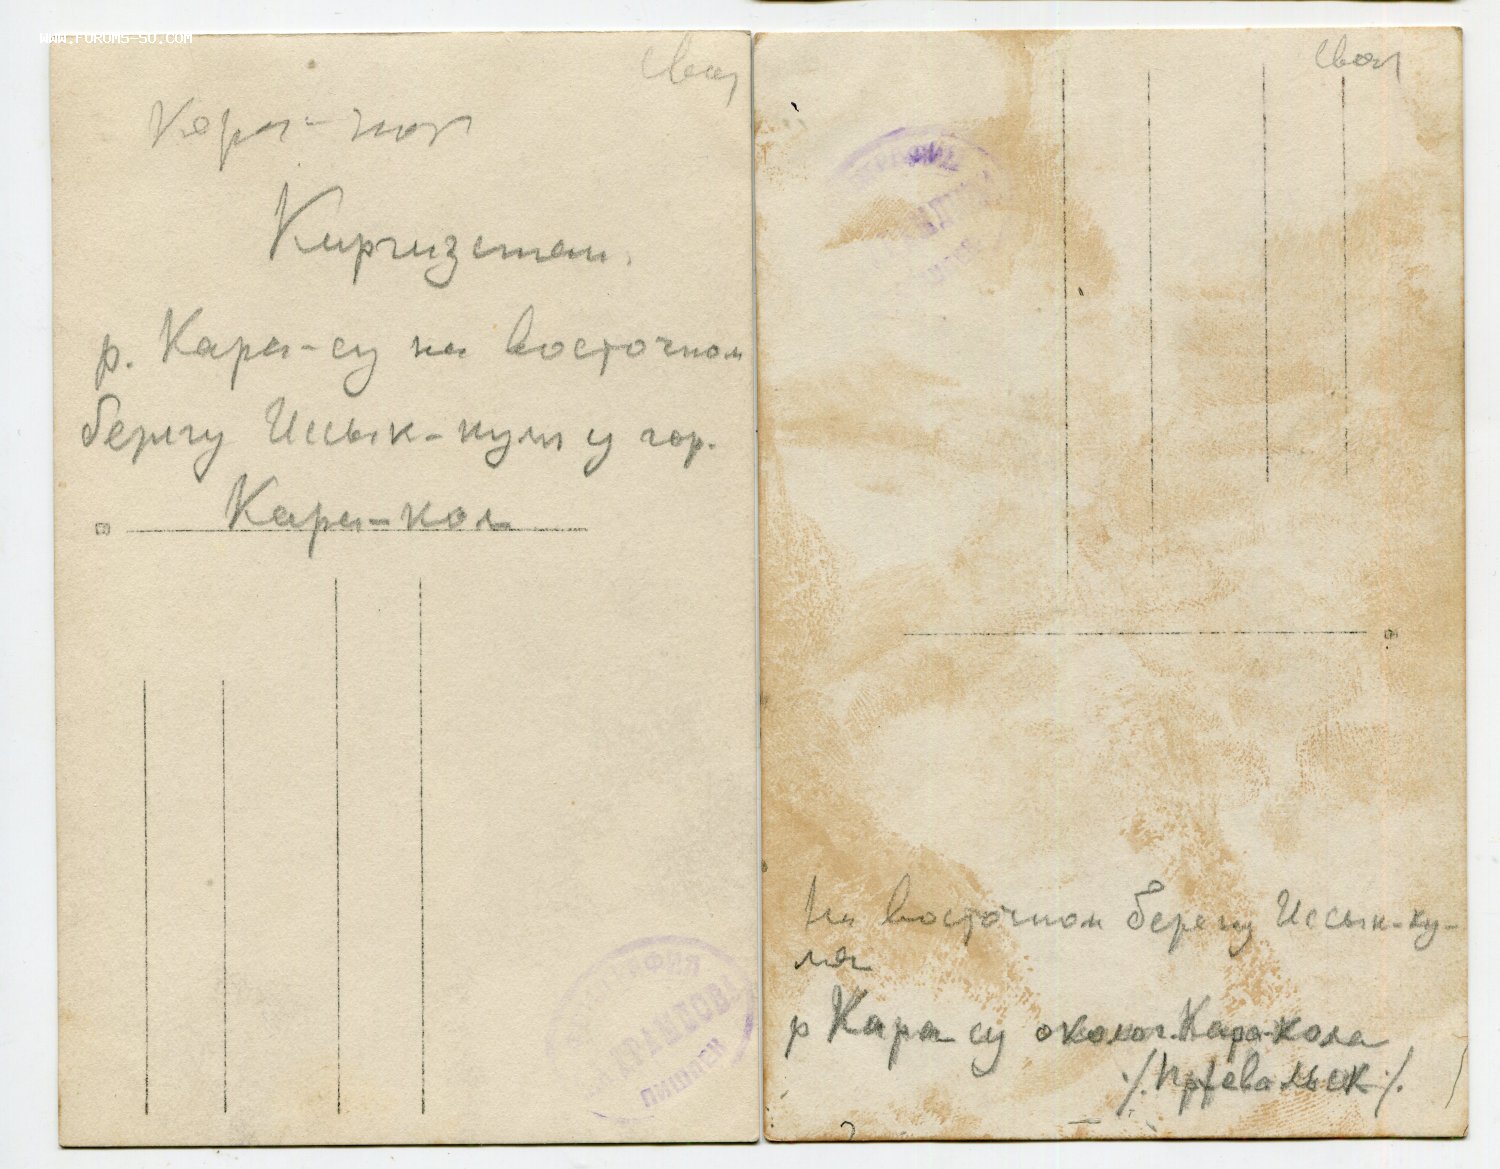 WWW.FORUMS-SU.COM
свал
Кара-
Киргизстан.
р. Кара-су на восточном
берегу Иссык-куля у гор.
Кара-кол
ПИШПЕК
свал
На восточном берегу Иссык-ку-
ля
р Кара су около г. Кара-кола
/Пржевальск/.